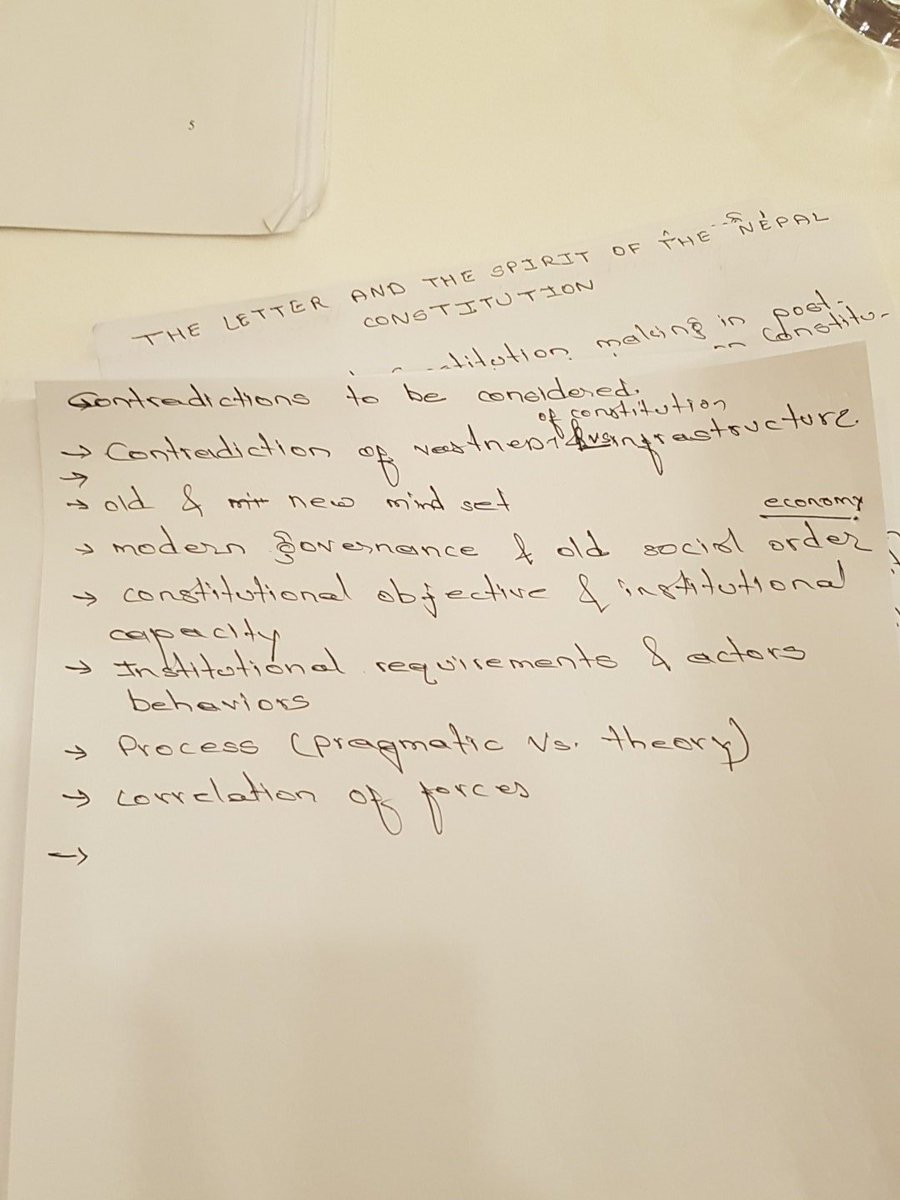 5
THE LETTER AND THE SPIRIT OF THE NEPAL
CONSTITUTION
making in post-
constitu-
Contradictions to be considered.
of constitution
→ Contradiction of vastness vs infrastructure
→
→ old & new mind set
economy
→ modern governance & old social order
→ constitutional objective & institutional
capacity
→ Institutional requirements & actors
behaviors
→ Process (pragmatic vs. theory)
→ correlation of forces
→